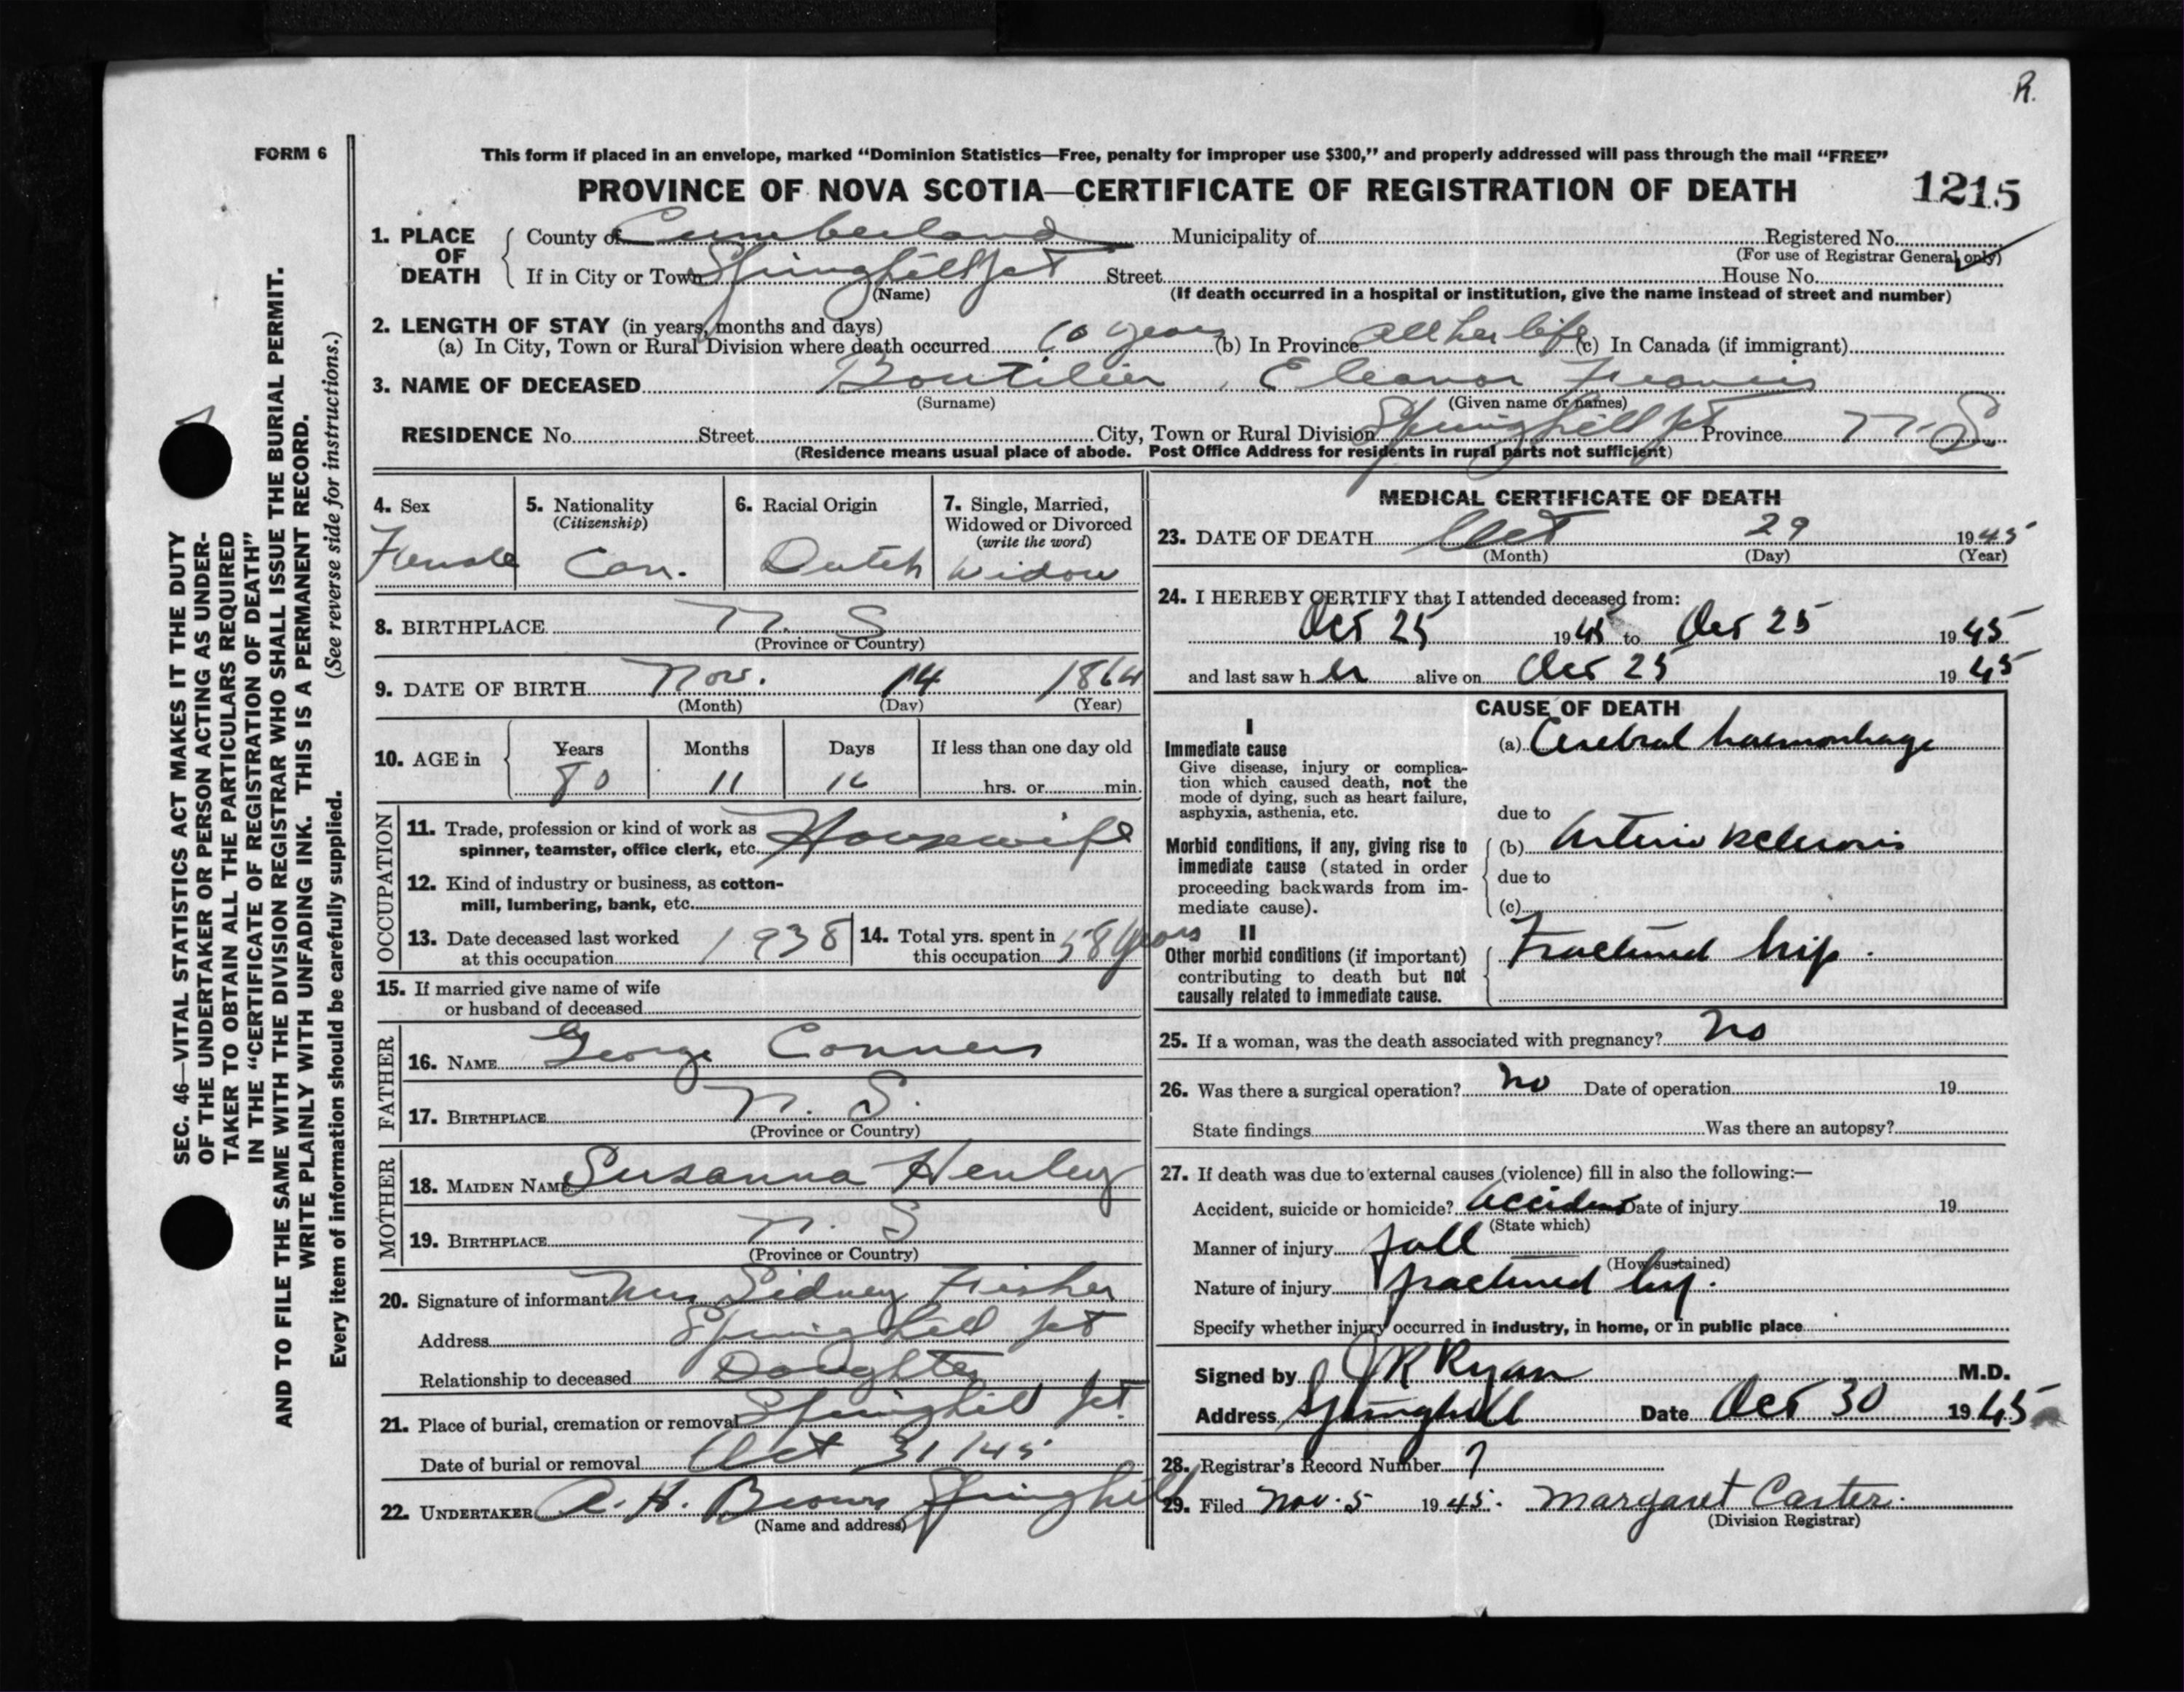 R.
FORM 6
This form if placed in an envelope, marked “Dominion Statistics—Free, penalty for improper use $300,” and properly addressed will pass through the mail “FREE”
PROVINCE OF NOVA SCOTIA—CERTIFICATE OF REGISTRATION OF DEATH 1215
SEC. 46—VITAL STATISTICS ACT MAKES IT THE DUTY
OF THE UNDERTAKER OR PERSON ACTING AS UNDER-
TAKER TO OBTAIN ALL THE PARTICULARS REQUIRED
IN THE “CERTIFICATE OF REGISTRATION OF DEATH”
AND TO FILE THE SAME WITH THE DIVISION REGISTRAR WHO SHALL ISSUE THE BURIAL PERMIT.
WRITE PLAINLY WITH UNFADING INK. THIS IS A PERMANENT RECORD.
Every item of information should be carefully supplied. (See reverse side for instructions.)
1. PLACE OF DEATH
County of Cumberland Municipality of Registered No.
(For use of Registrar General only)
If in City or Town Springhill Jct Street House No.
(Name) (If death occurred in a hospital or institution, give the name instead of street and number)
2. LENGTH OF STAY (in years, months and days)
(a) In City, Town or Rural Division where death occurred 60 years (b) In Province all her life (c) In Canada (if immigrant)
3. NAME OF DECEASED Boutilier, Eleanor Francis
(Surname) (Given name or names)
RESIDENCE No. Street City, Town or Rural Division Springhill Jct Province N.S.
(Residence means usual place of abode. Post Office Address for residents in rural parts not sufficient)
4. Sex
Female
5. Nationality
(Citizenship)
Can.
6. Racial Origin
Dutch
7. Single, Married,
Widowed or Divorced
(write the word)
Widow
8. BIRTHPLACE N. S
(Province or Country)
9. DATE OF BIRTH Nov. 14 1864
(Month) (Day) (Year)
10. AGE in Years Months Days If less than one day old
80 11 16 hrs. or min.
OCCUPATION
11. Trade, profession or kind of work as
spinner, teamster, office clerk, etc. Housewife
12. Kind of industry or business, as cotton-
mill, lumbering, bank, etc.
13. Date deceased last worked
at this occupation 1938
14. Total yrs. spent in
this occupation 58 years
15. If married give name of wife
or husband of deceased
FATHER
16. NAME George Conners
17. BIRTHPLACE N. S.
(Province or Country)
MOTHER
18. MAIDEN NAME Susanna Henley
19. BIRTHPLACE N. S
(Province or Country)
20. Signature of informant Mrs Sidney Fisher
Address Springhill Jct
Relationship to deceased Daughter
21. Place of burial, cremation or removal Springhill Jct.
Date of burial or removal Oct 31/45
22. UNDERTAKER A. H. Brown Springhill
(Name and address)
MEDICAL CERTIFICATE OF DEATH
23. DATE OF DEATH Oct 29 1945
(Month) (Day) (Year)
24. I HEREBY CERTIFY that I attended deceased from:
Oct 25 1945 to Oct 25 1945
and last saw her alive on Oct 25 1945
CAUSE OF DEATH
I
Immediate cause
Give disease, injury or complica-
tion which caused death, not the
mode of dying, such as heart failure,
asphyxia, asthenia, etc.
(a) Cerebral haemorrhage
due to
Morbid conditions, if any, giving rise to
immediate cause (stated in order
proceeding backwards from im-
mediate cause).
(b) Arterio sclerosis
due to
(c)
II
Other morbid conditions (if important)
contributing to death but not
causally related to immediate cause.
Fractured hip.
25. If a woman, was the death associated with pregnancy? No
26. Was there a surgical operation? no Date of operation 19
State findings Was there an autopsy?
27. If death was due to external causes (violence) fill in also the following:—
Accident, suicide or homicide? Accident Date of injury 19
(State which)
Manner of injury fall
(How sustained)
Nature of injury fractured hip.
Specify whether injury occurred in industry, in home, or in public place
Signed by J R Ryan M.D.
Address Springhill Date Oct 30 1945
28. Registrar's Record Number 7
29. Filed Nov. 5 1945. Margaret Carter.
(Division Registrar)